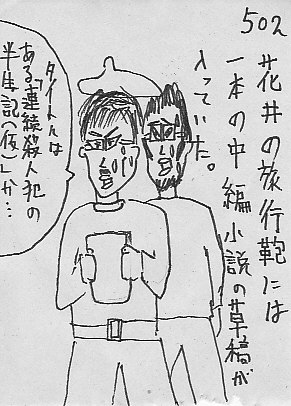 502
花井の旅行鞄には
一本の中編小説の草稿が
入っていた。
タイトルは
ある「連続殺人犯の
半生記(仮)」か…